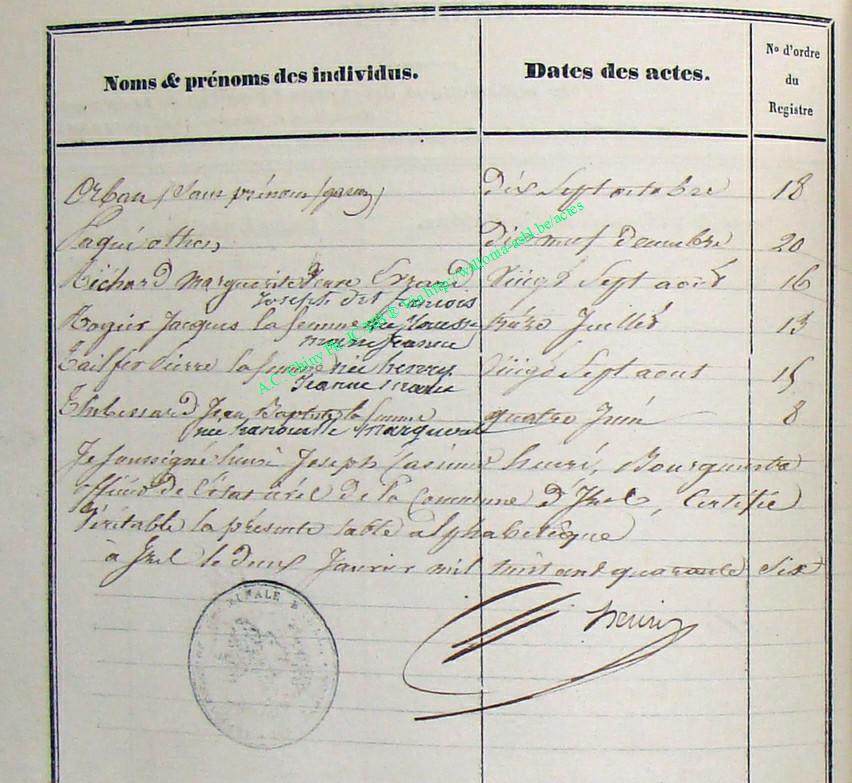 Noms & prénoms des individus. Dates des actes. N° d'ordre du Registre
Orban (sans prénom garçon) Dix Sept octobre 18
Dix neuf Décembre 20
Richard Marguerite veuve Evrard Vingt Sept août 16
Joseph dit francois
Rogier Jacques la femme née Treize Juillet 13
Pierre la femme née henry Vingt Sept aout 15
Jeanne marie
Jean Baptiste la femme quatre Juin 8
née Marguerite
Je soussigné henri Joseph Casimir henri, Bourgmestre
officier de l'état civil de la Commune d'Izel, Certifie
Véritable la présente table alphabétique
à Izel le deux Janvier mil huit cent quarante Six
henri
A.C. Chiny http://willoma-asbl.be/actes